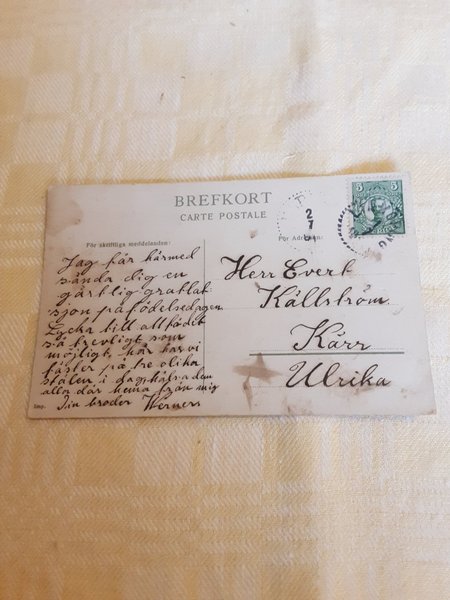 BREFKORT
CARTE POSTALE
För skriftliga meddelanden:
För Adressen:
Jag får härmed
sända dig en
på födelsedagen
Lycka till allt födt
så trevligt som
möjligt, här har vi
fäster på tre olika
ställen i dag hälsa dem
alla där hemma från mig
Din broder Werner
Herr Evert
Källström
Kärr
Ulrika
5
5
2
7
Imp.